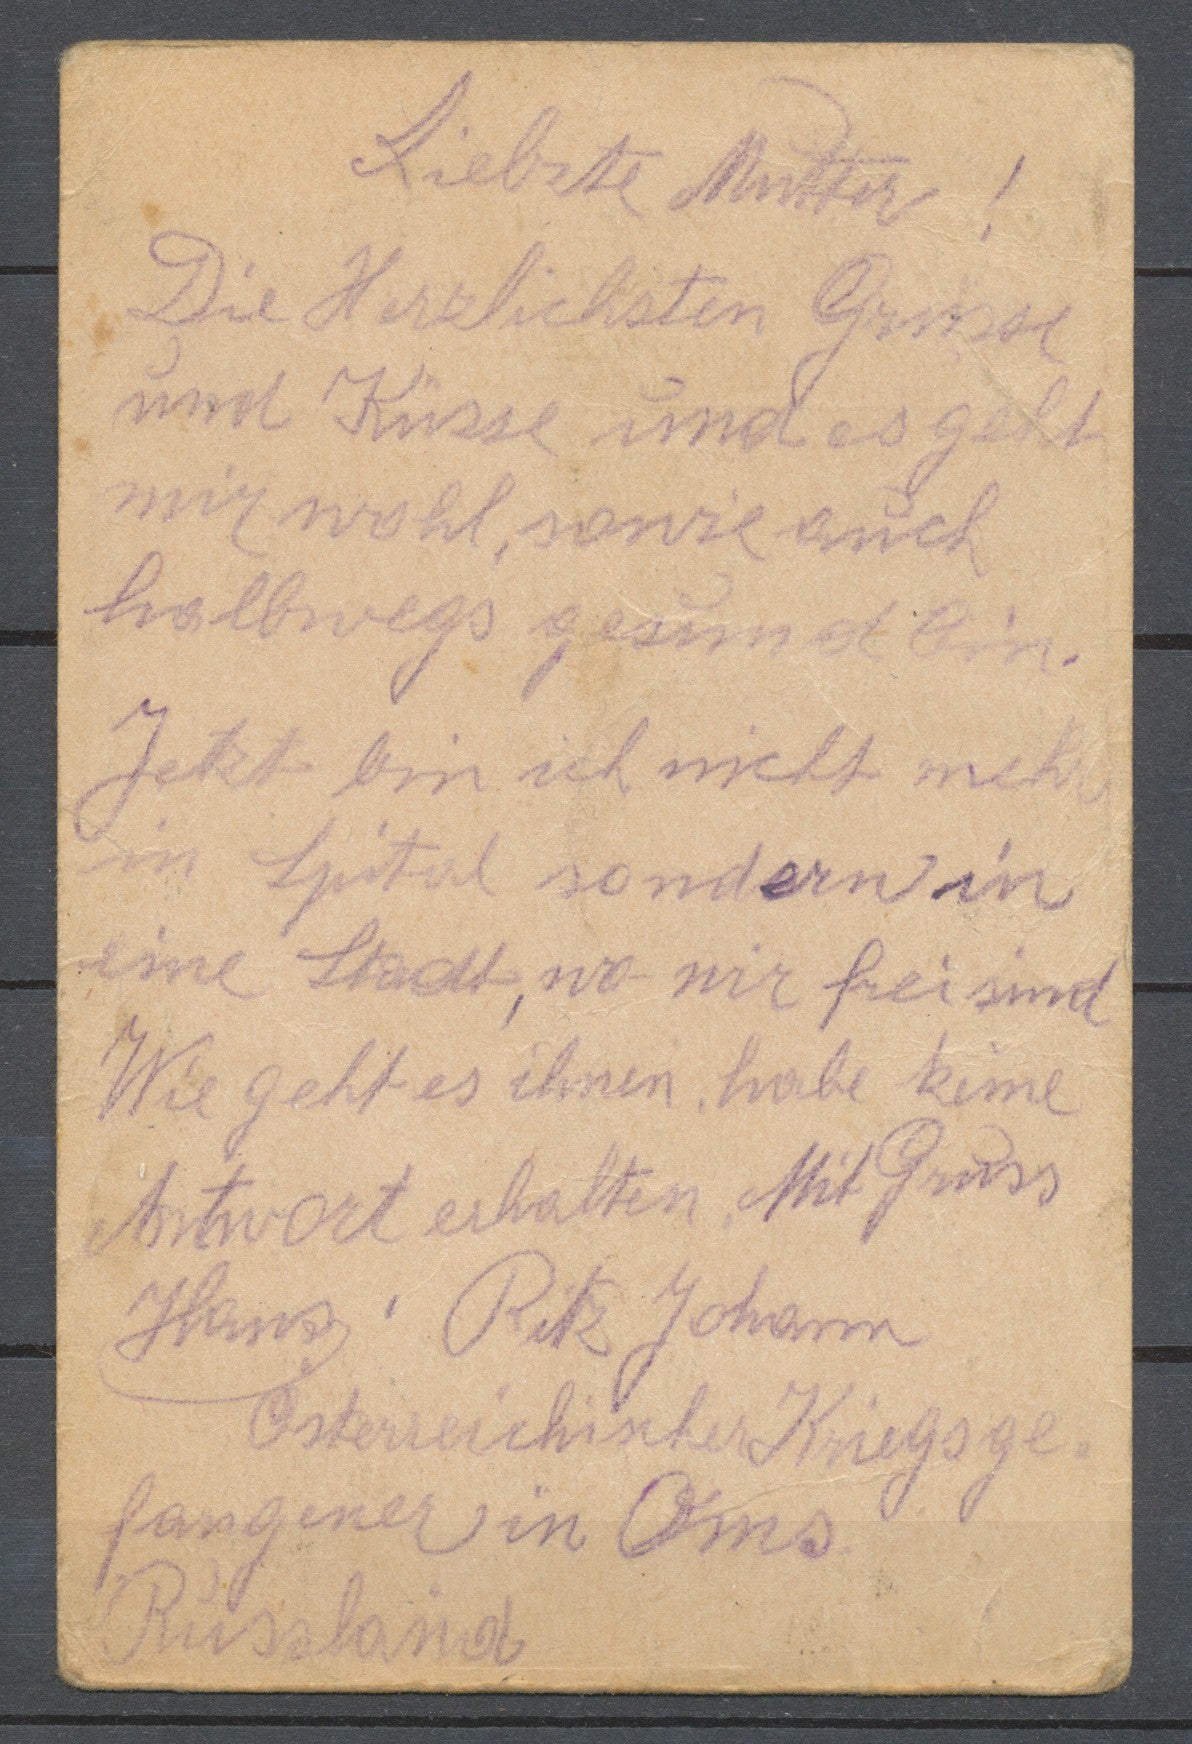 Liebste Mutter !
Die Herzlichsten Grüsse
und Küsse und es geht
mir wohl, sowie auch
halbwegs gesund bin.
Jetzt bin ich nicht mehr
in Spital sondern in
eine Stadt, wo wir frei sind
Wie geht es ihnen, habe keine
Antwort erhalten. Mit Gruss
Hans, Ritz Johann
Österreichischer Kriegsge-
fangener in Oms
Russland